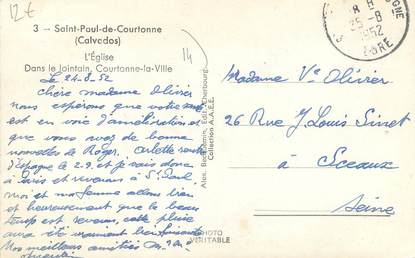 12€
3 — Saint-Paul-de-Courtonne
(Calvados)
L'Église
Dans le lointain, Courtonne-la-Ville
14
OGNE
8 H
25-8
1952
Le 24-8-52
Chère madame Olivier
nous espérons que votre
est en voie d'amélioration et
que vous avez de bonne
nouvelles de Roger. Arlette rentre
d'Espagne le 2.9. et je vais donc
à Paris et reviens à St Paul
moi et ma femme allons bien
et heureusement que le beau
temps est revenu, cette pluie
aura été vraiment bienfaisante
Nos meilleurs amitiés
Alex. Édit. Cherbourg
Collection A.A.E.E.
PHOTO
VÉRITABLE
Madame Ve Olivier
26 Rue J. Louis Sinet
à Sceaux
Seine